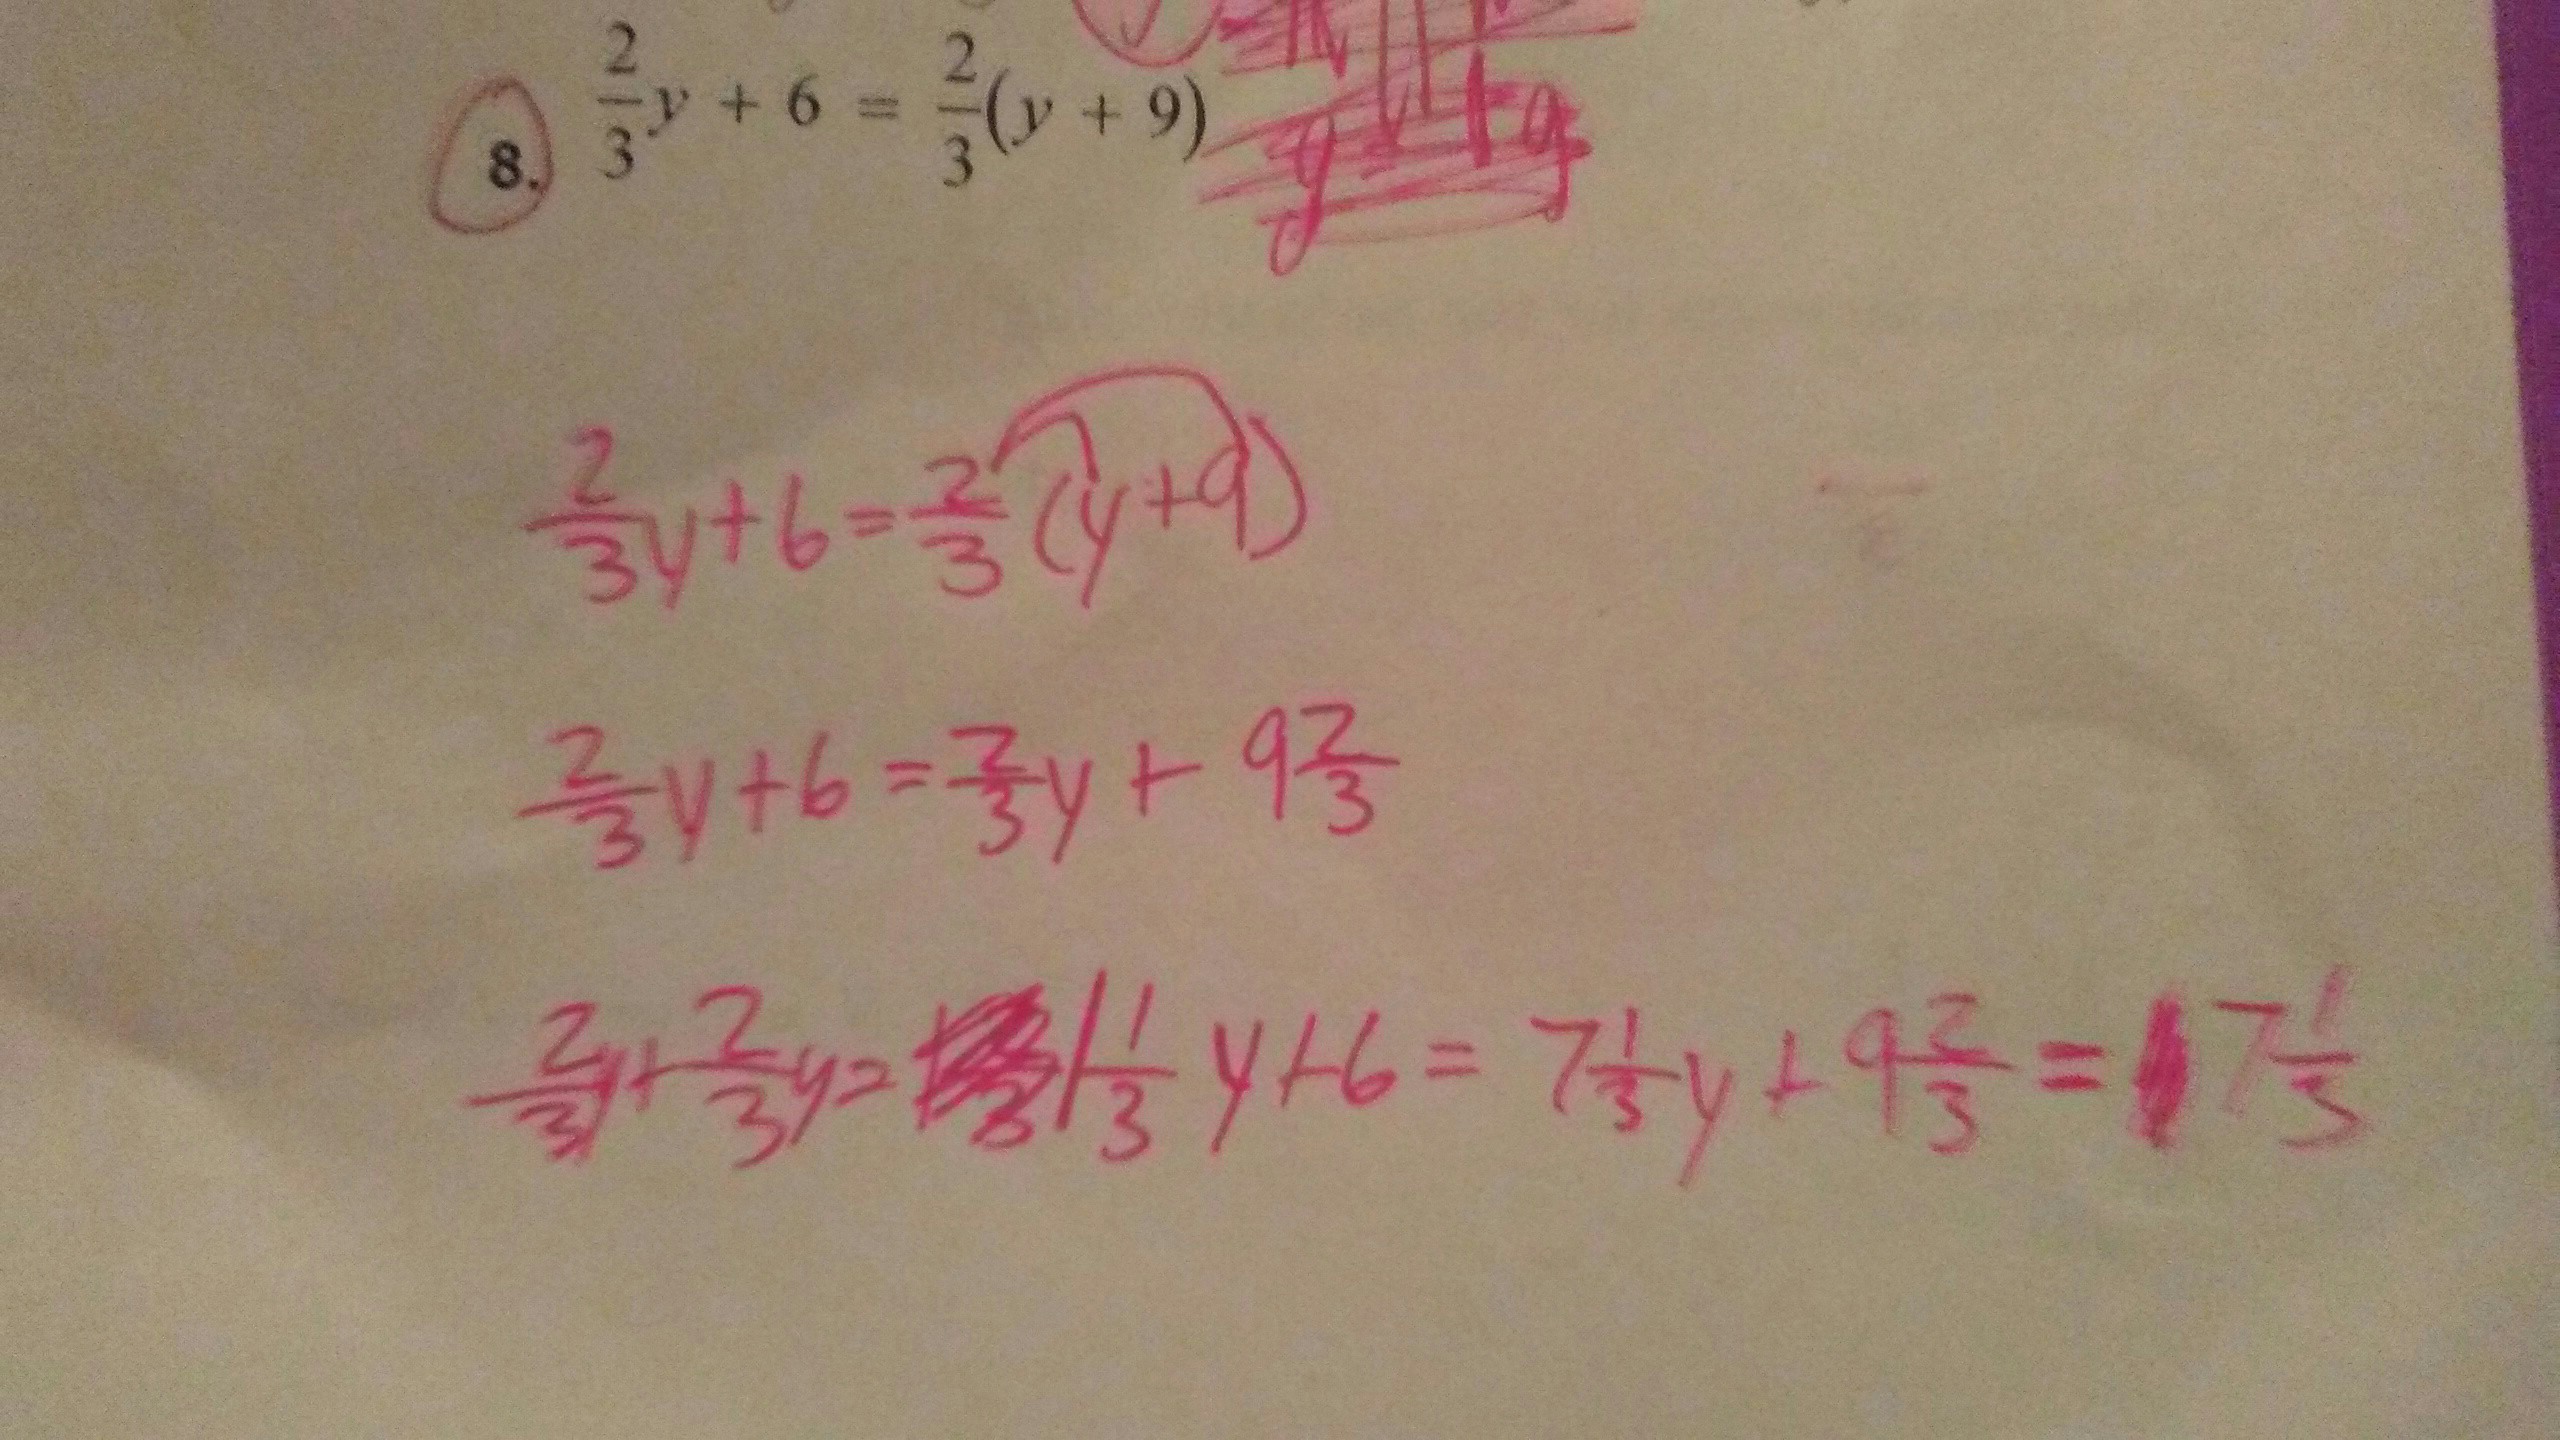 8. 2/3 y + 6 = 2/3 (y + 9)
2/3 y + 6 = 2/3 (y + 9)
2/3 y + 6 = 2/3 y + 9 2/3
2/3 y + 2/3 y = 1 1/3 y + 6 = 7 1/3 y + 9 2/3 = 7 1/3